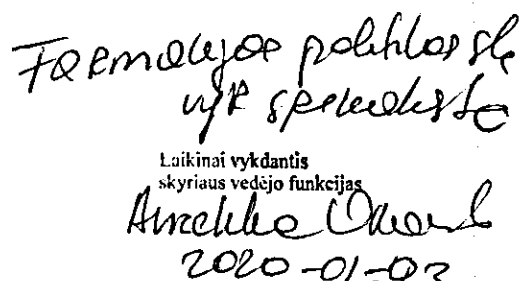 Farmacijos politikos sk.
vyr. specialistė
Laikinai vykdantis
skyriaus vedėjo funkcijas
2020-01-03